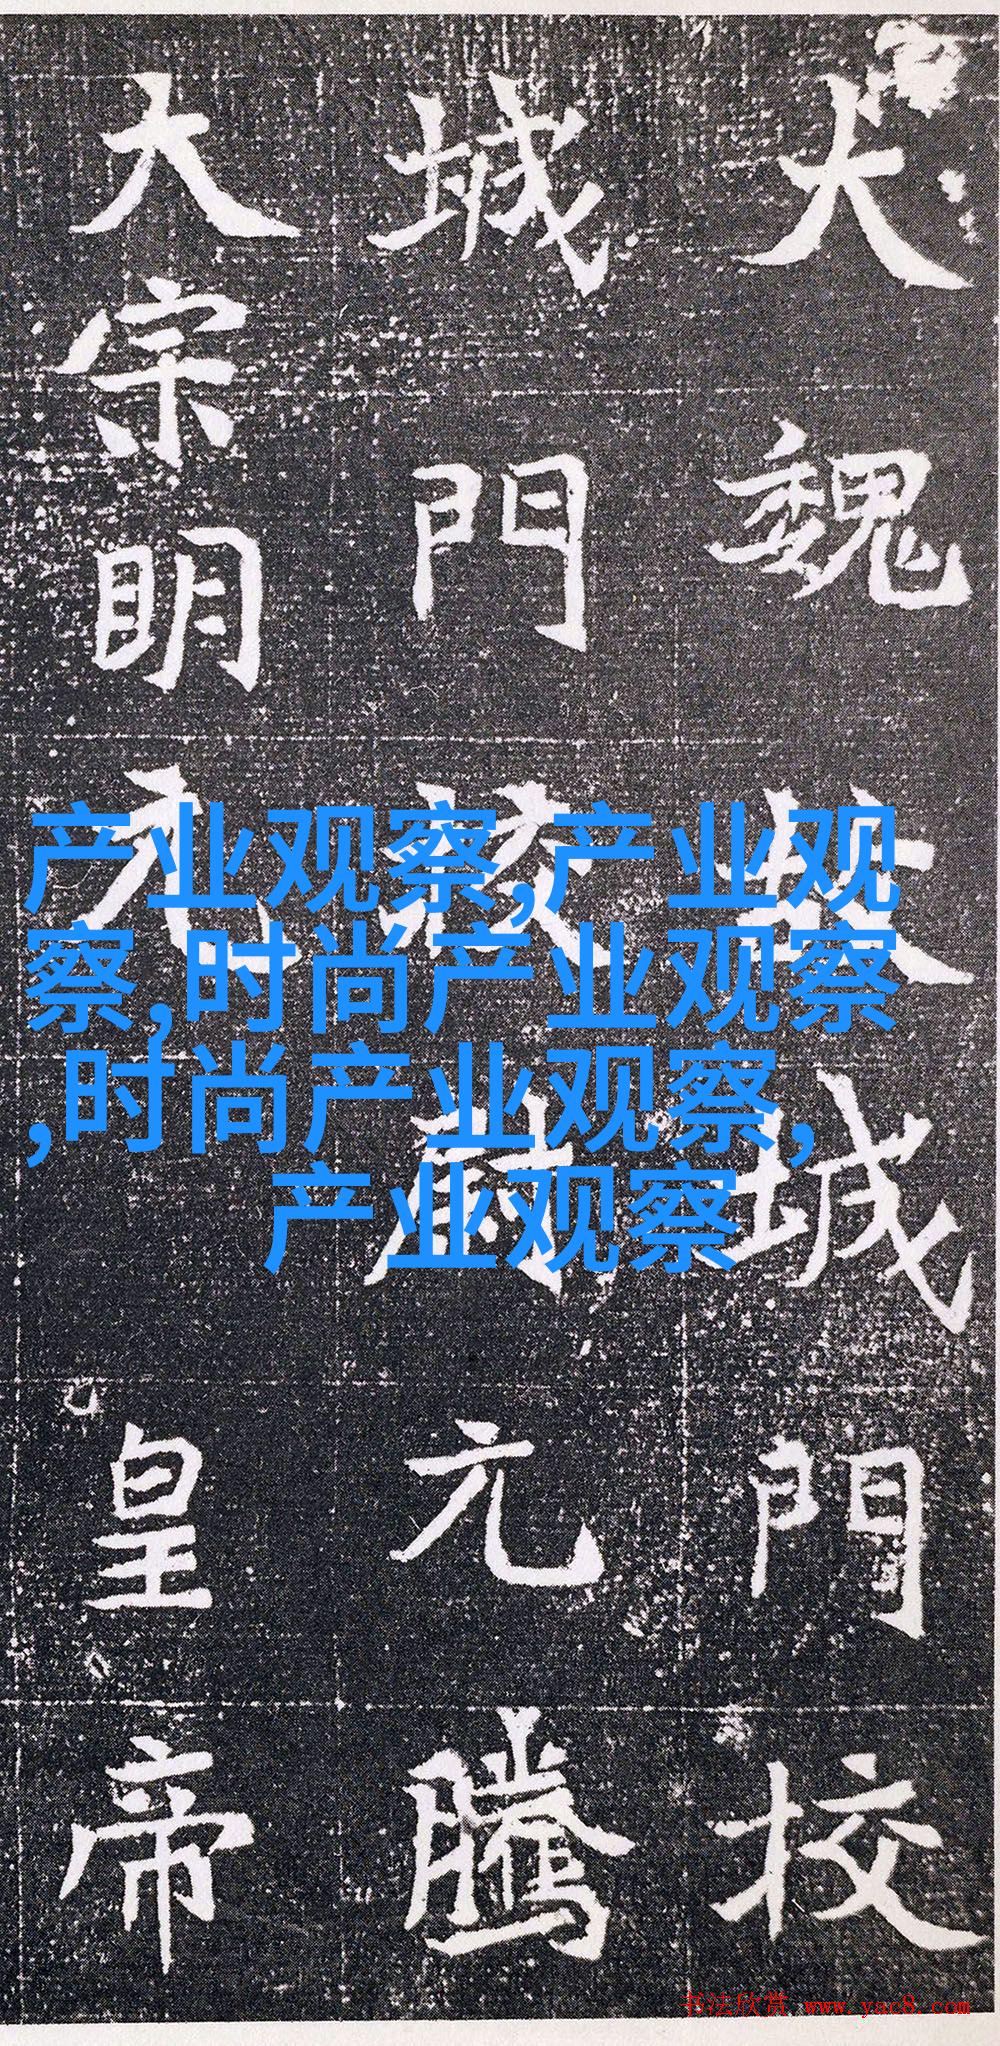 大魏故城門校
城門校尉元騰
大宗明元皇帝
产业观察,产业观
察,时尚产业观察
,时尚产业观察,
产业观察
书法欣赏 www.yac8.com